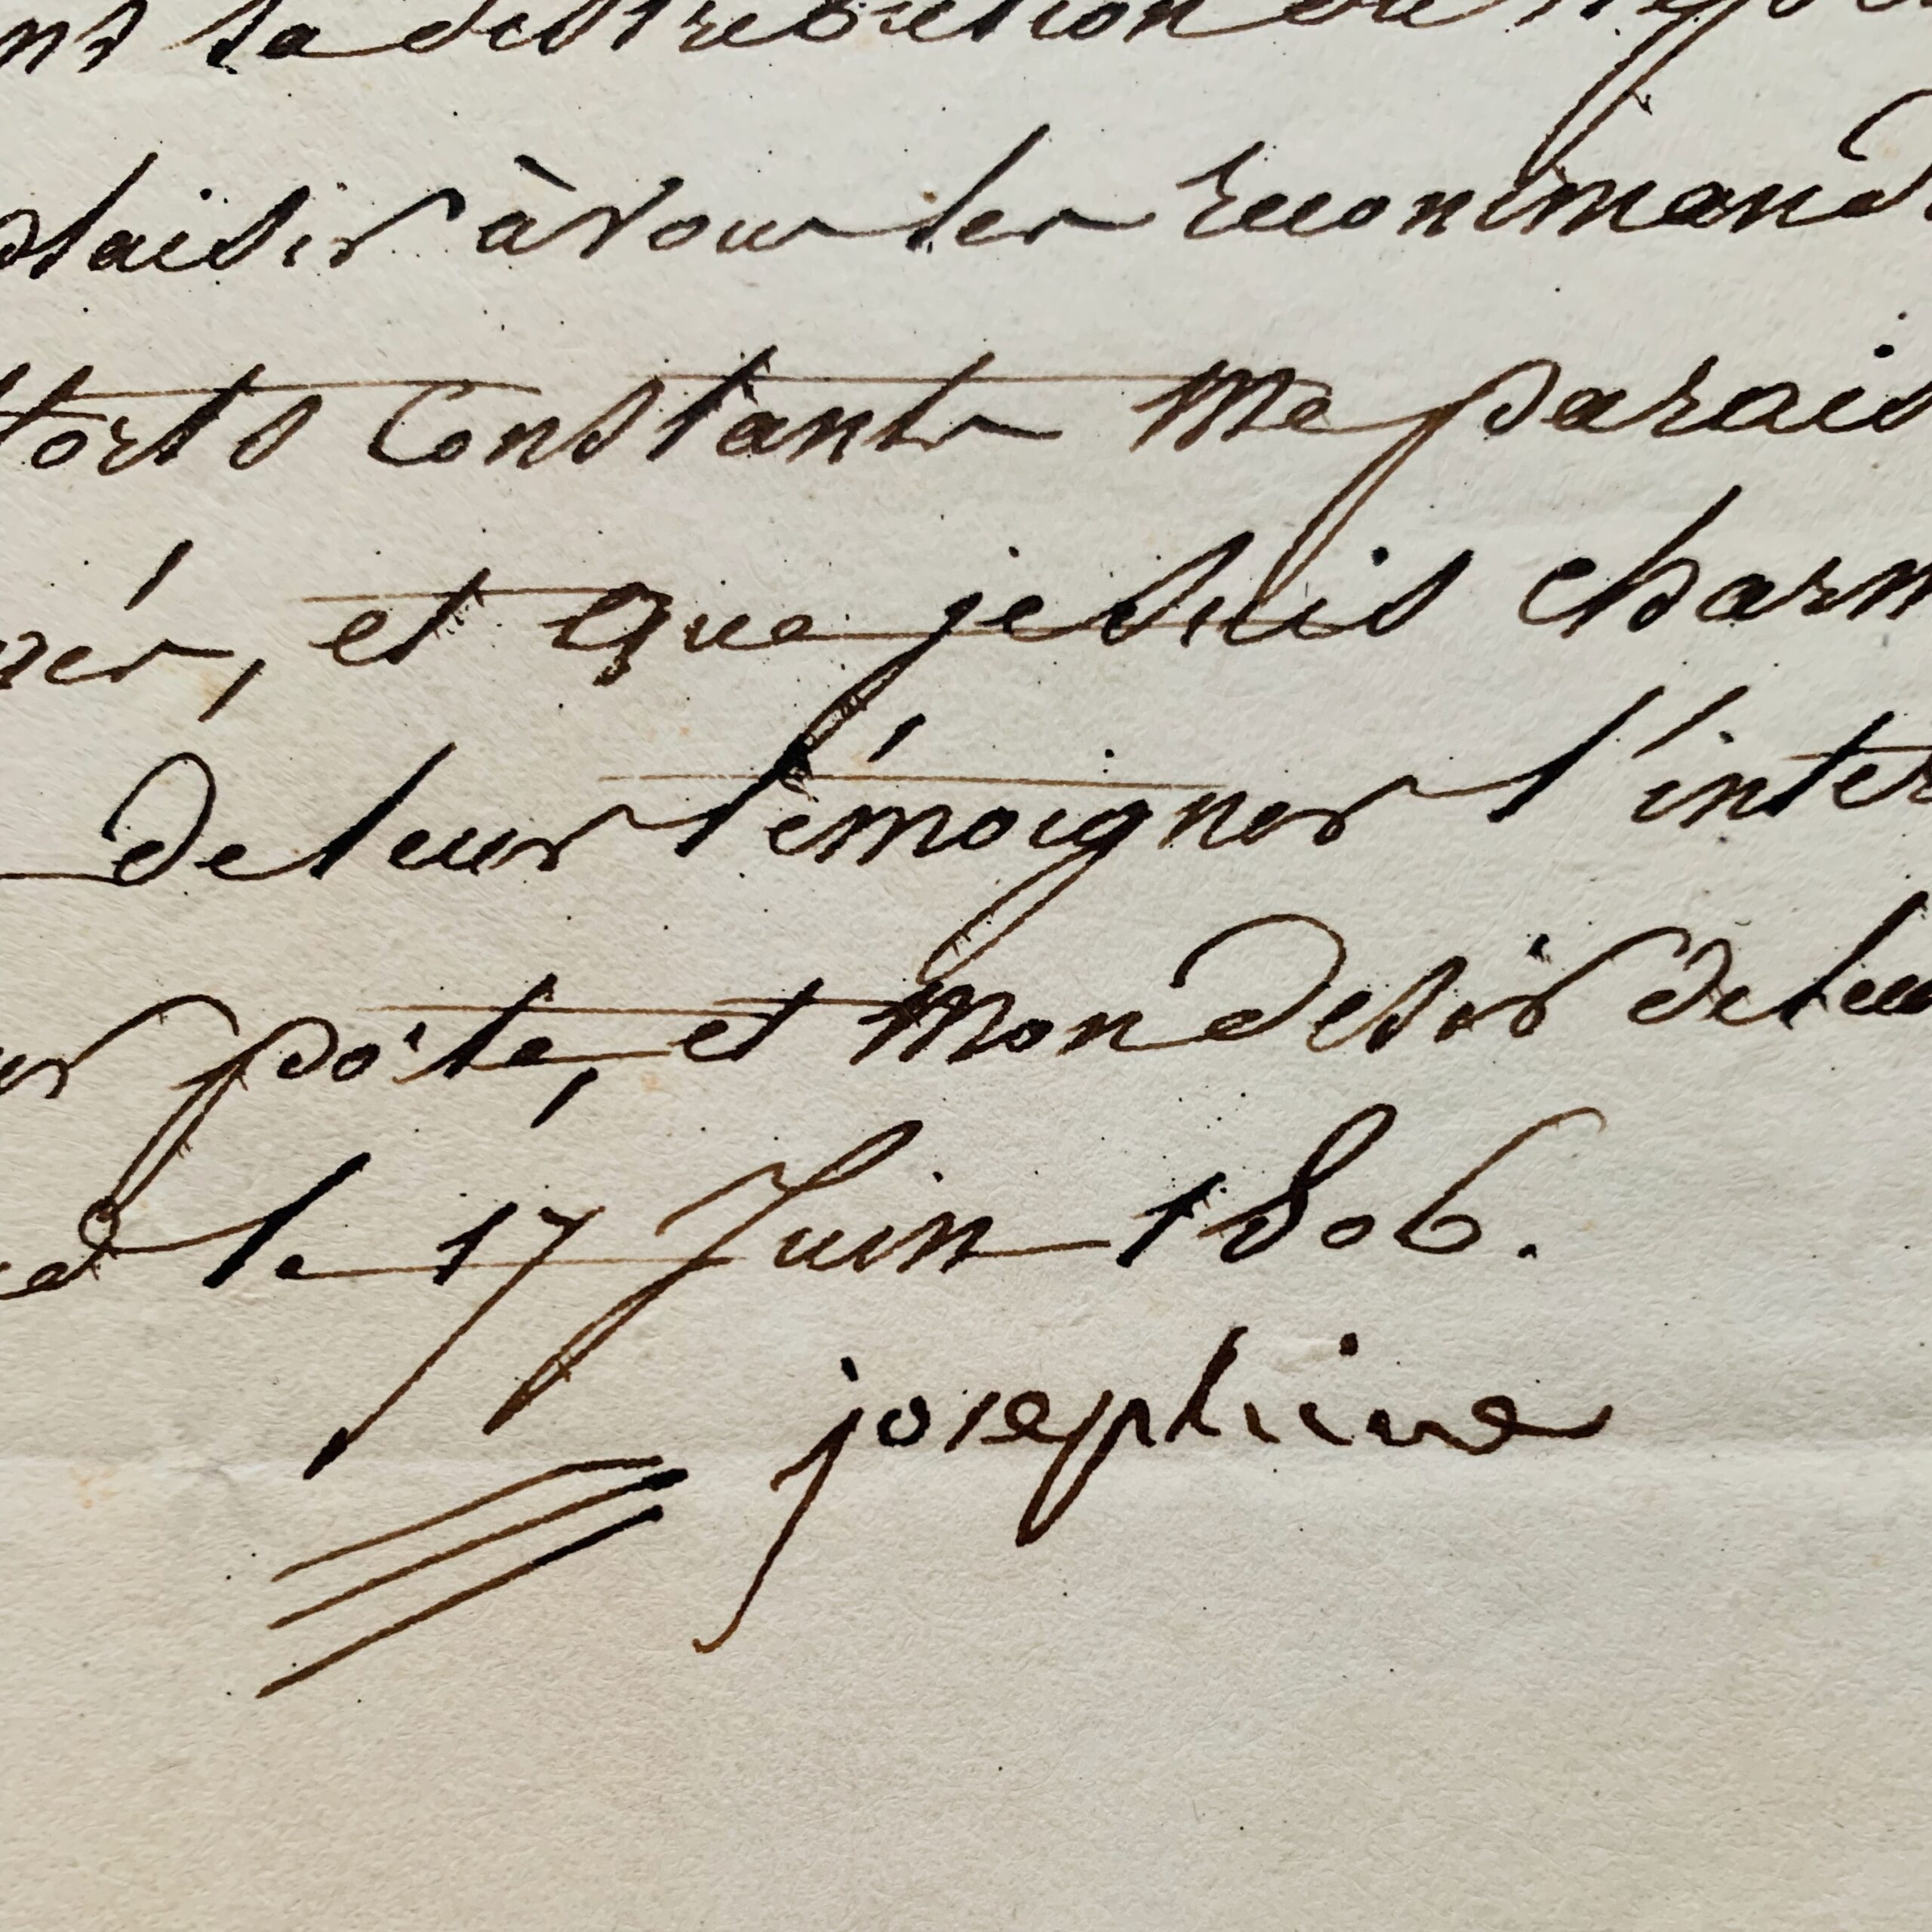 la distribution de
plaisir à vous les recommand
fforts Constants me parais
rés, et que je suis charm
de leur témoigner l'inter
ur poste, et mon desir de leu
le 17 Juin 1806.
josephine